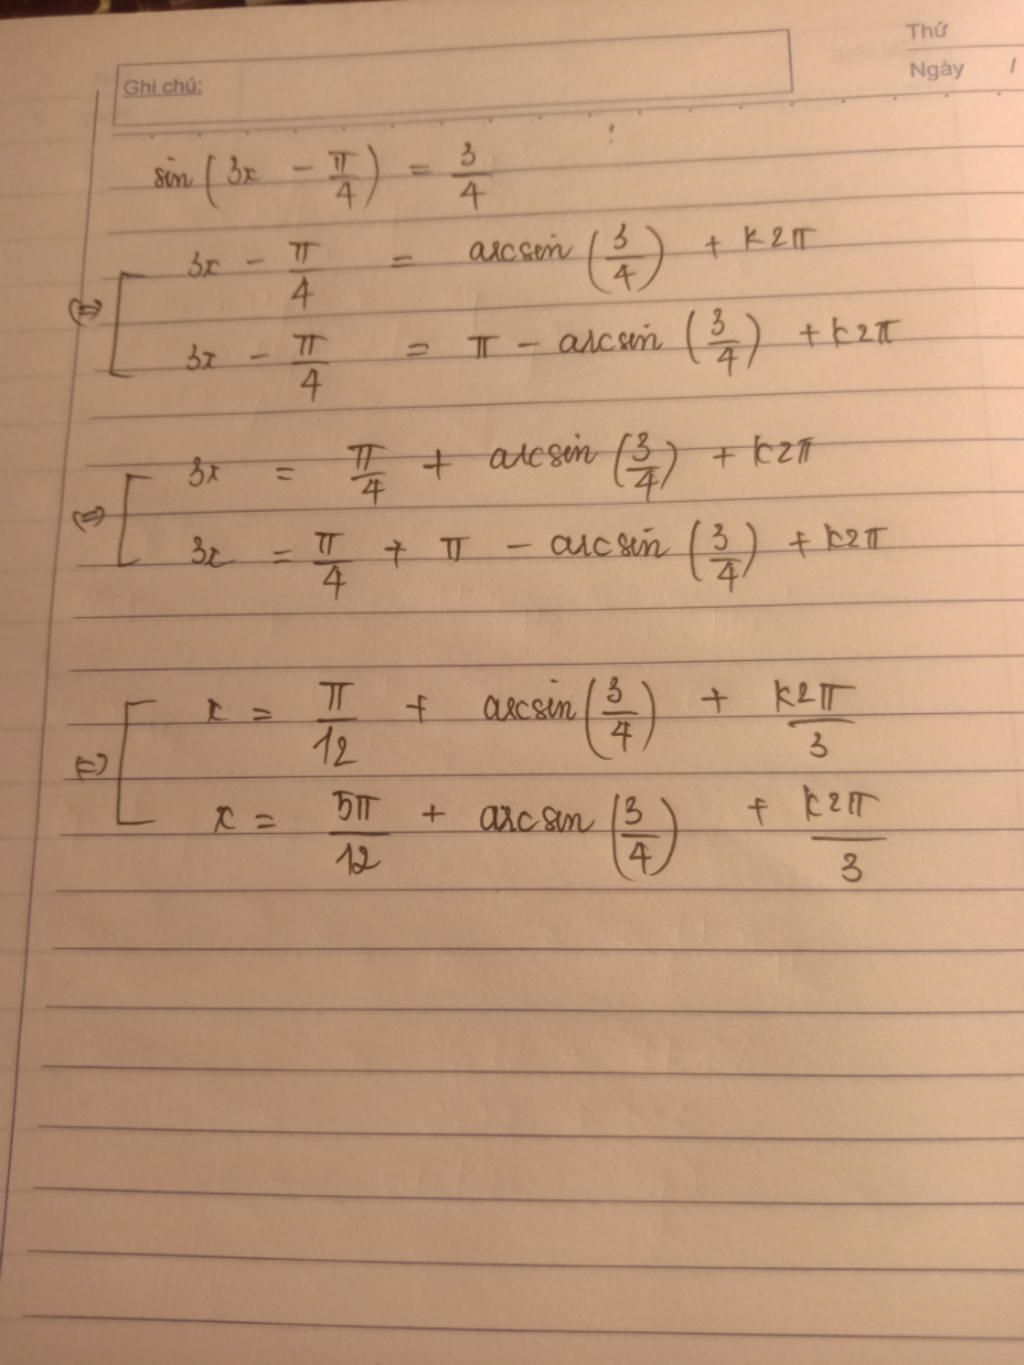 Thứ
Ghi chú:
Ngày /
sin(3x - π/4) = 3/4
⇔ [ 3x - π/4 = arcsin(3/4) + k2π
3x - π/4 = π - arcsin(3/4) + k2π
⇔ [ 3x = π/4 + arcsin(3/4) + k2π
3x = π/4 + π - arcsin(3/4) + k2π
⇔ [ x = π/12 + arcsin(3/4) + k2π/3
x = 5π/12 + arcsin(3/4) + k2π/3